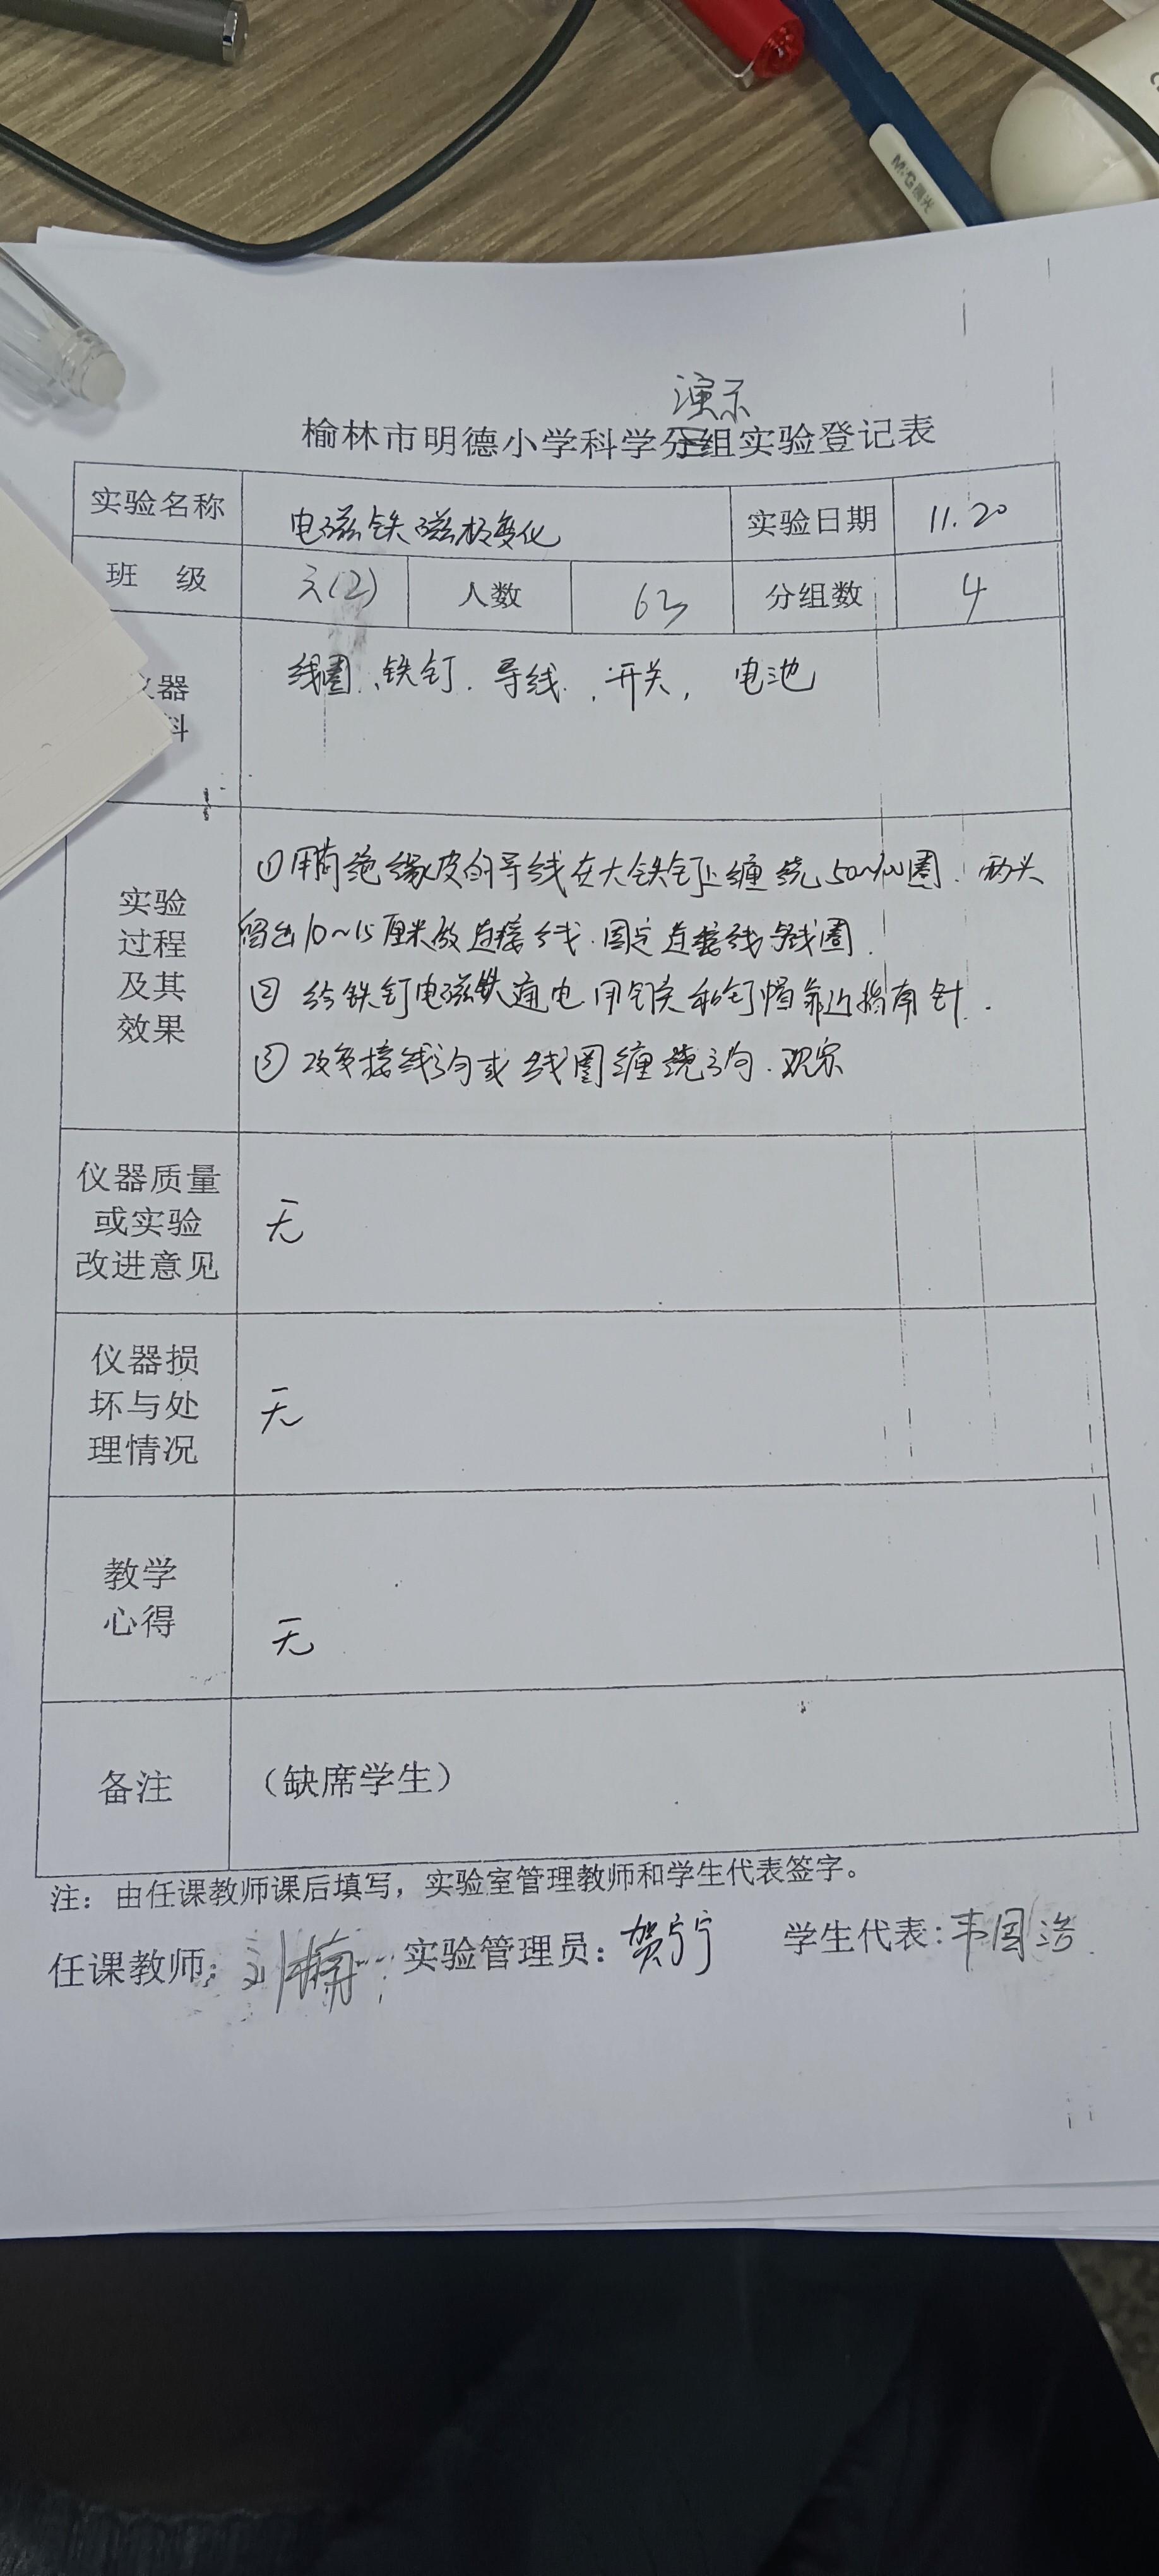 M&G晨光
演示
榆林市明德小学科学分组实验登记表
实验名称 电磁铁磁极变化 实验日期 11.20
班 级 六(2) 人数 63 分组数 4
器 线圈、铁钉、导线、开关, 电池
料
实验过程及其效果
①用有绝缘皮的导线在大铁钉上缠绕50~100圈.两头
留出10~15厘米做连接线.固定连接线与线圈.
② 给铁钉电磁铁通电 用钉尖和钉帽靠近指南针.
③ 改变接线方向或线圈缠绕方向.观察
仪器质量或实验改进意见 无
仪器损坏与处理情况 无
教学心得 无
备注 (缺席学生)
注: 由任课教师课后填写,实验室管理教师和学生代表签字。
任课教师: 刘楠 实验管理员: 贺宁宁 学生代表: 韦国浩